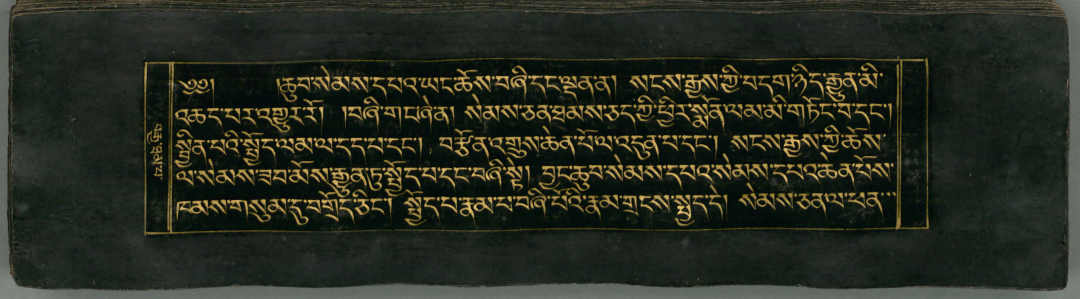 ༄༅། །ཆུབ་སེམས་དཔའ་ཡང་ཆོས་བཞི་དང་ལྡན་ན། སངས་རྒྱས་ཀྱི་བདག་ཉིད་རྒྱུན་མི་
འཆད་པར་འགྱུར་རོ། །བཞི་གང་ཞེ་ན། སེམས་ཅན་ཐམས་ཅད་ཀྱི་ཕྱིར་སྨོན་ལམ་མི་གཏོང་བ་དང་།
སྦྱིན་པའི་སྤྱོད་ལམ་ལ་དད་པ་དང་། བརྩོན་འགྲུས་ཆེན་པོ་ལ་འདུན་པ་དང་། སངས་རྒྱས་ཀྱི་ཆོས་
ལ་སེམས་ཟབ་མོས་རྒྱུན་ཏུ་སྤྱོད་པ་དང་བཞི་སྟེ། བྱང་ཆུབ་སེམས་དཔའ་སེམས་དཔའ་ཆེན་པོས་
ཁམས་གསུམ་དུ་བགྲོད་ཅིང་། སྤྱོད་པ་རྣམ་པ་བཞི་པོའི་རྣམ་གྲངས་སྤྱད་དེ། སེམས་ཅན་ལ་ཕན་